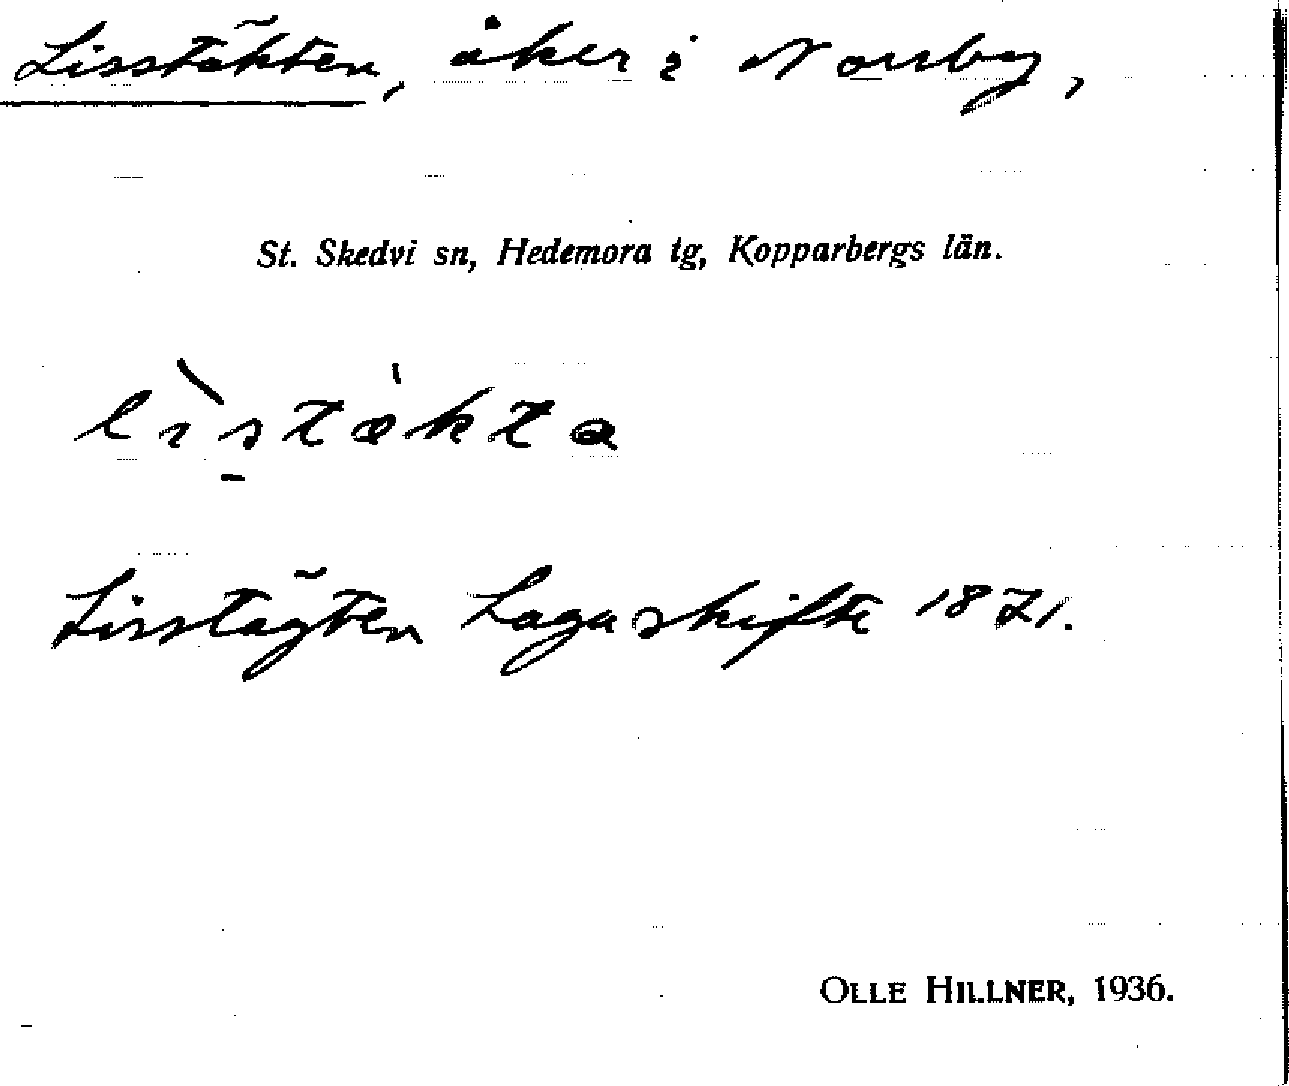 Lisstäkten, åker i Norrby,
St. Skedvi sn, Hedemora tg, Kopparbergs län.
lìstækta
Lisstägten Lagaskifte 1871.
OLLE HILLNER, 1936.